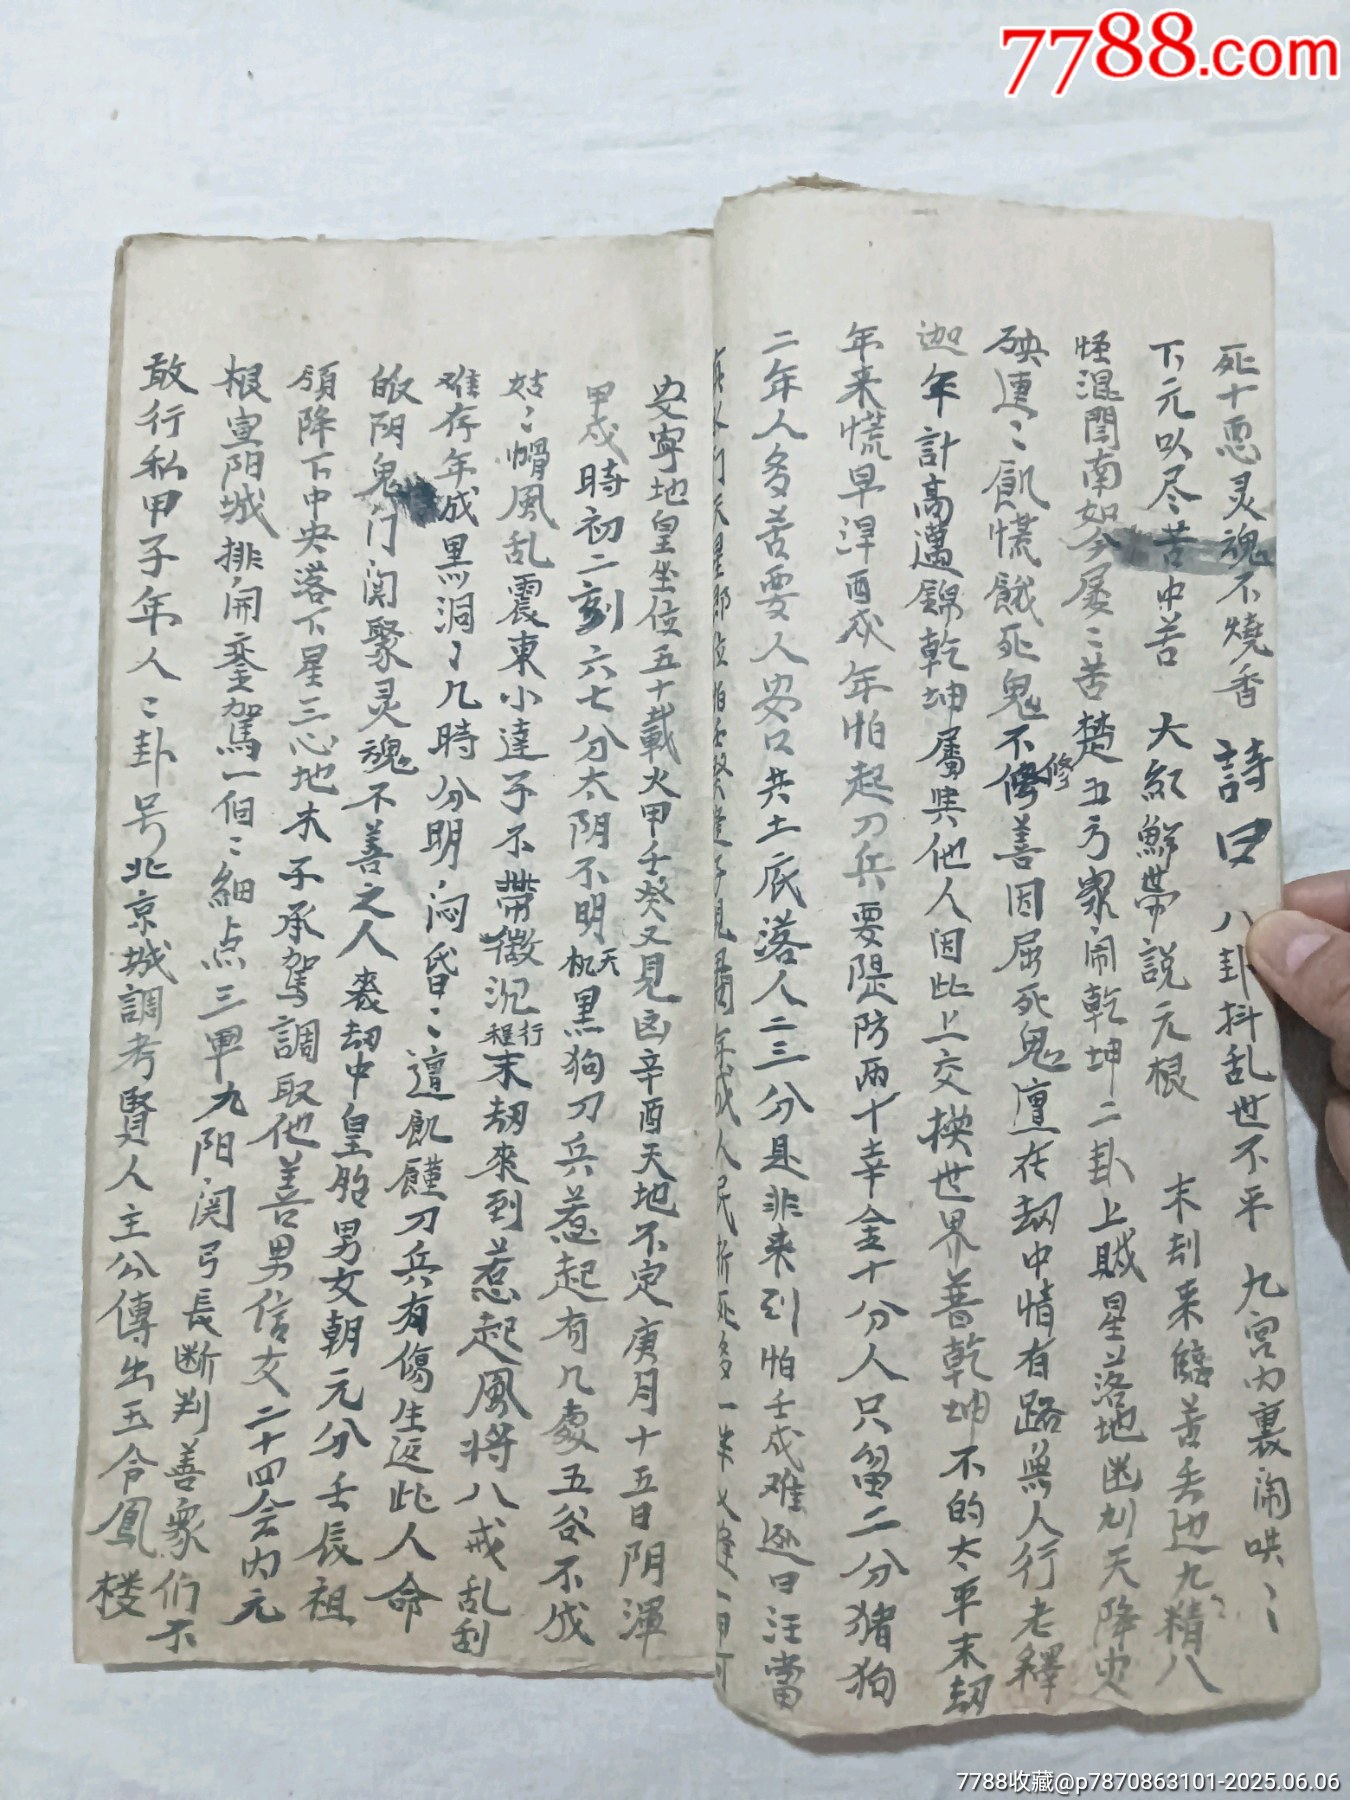 7788.com
死十惡灵魂不燒香 詩曰 八卦抖乱世不平 九宮内裏闹哄〻
下元以尽苦中苦 大紅鮮带説元根 末刦来臨苦无边九精八
怪混閻南如今屡〻苦楚五方家闹乾坤二卦上賊星落地凶刘天降灾
殃連〻飢慌餓死鬼不俢修善因屈死鬼直在刼中情有路無人行老釋
迦年計高邁錦乾坤屬與他人因此上交换世界普乾坤不的太平末刼
年来慌旱涝酉戌年怕起刀兵要隄防兩十幸金十分人只畄二分猪狗
二年人多苦要人安口共土底落人二三分是非来到怕壬戌难逃日汪當
安寧地皇坐位五十載火甲壬癸又見凶辛酉天地不定庚月十五日阴渾
甲戌時初二刻六七分太阴不明天机黑狗刀兵惹起有几處五谷不成
姑〻帽風乱震東小達子不带徵沉行程末刼來到惹起風将八戒乱刮
难存年成黑洞〻几時分明闷昏〻遭飢饉刀兵有傷生返此人命
的阴鬼门関聚灵魂不善之人裁刼中皇胎男女朝元分壬辰祖
領降下中央落下星三心地木子承駕調取他善男信女二十四会内元
根宣阳城排開銮駕一個〻細点三軍九阳関弓長断判善衆们不
敢行私甲子年人〻卦号北京城調考賢人主公傳出玉令鳳楼
7788收藏@p7870863101-2025.06.06